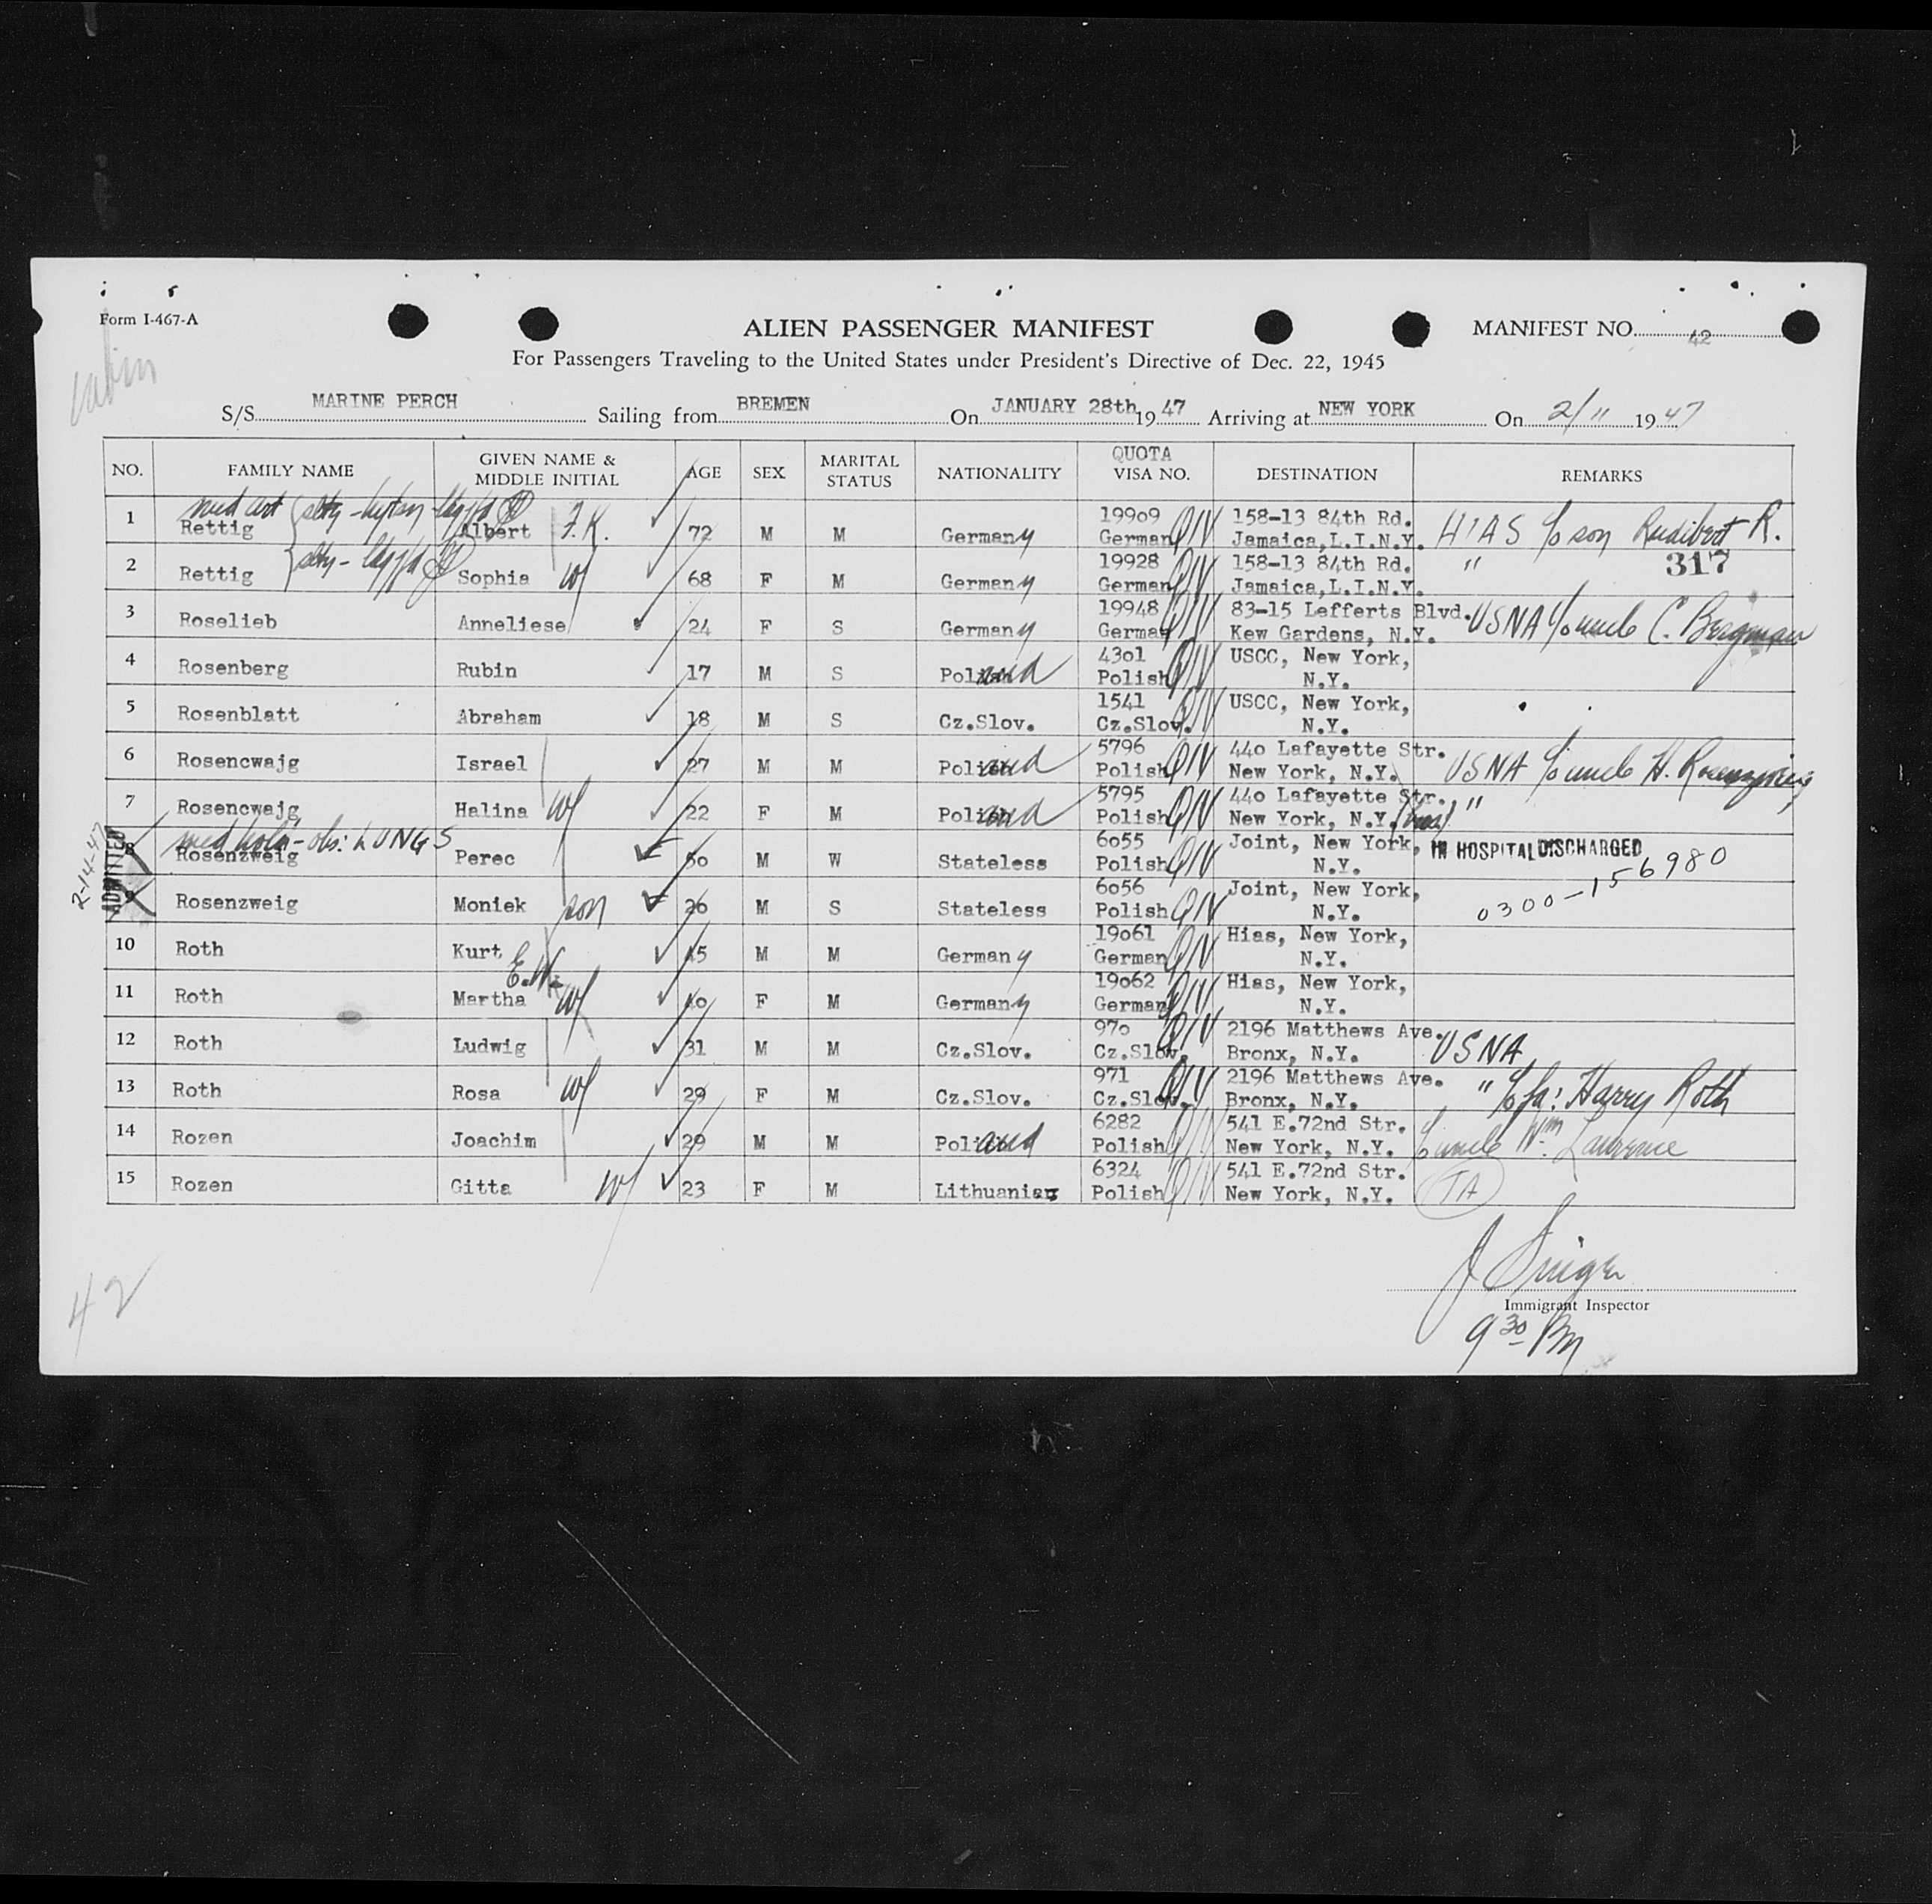 Form I-467-A
ALIEN PASSENGER MANIFEST
MANIFEST NO. 42
For Passengers Traveling to the United States under President's Directive of Dec. 22, 1945
S/S MARINE PERCH Sailing from BREMEN On JANUARY 28th, 19 47 Arriving at NEW YORK On 2/11 19 47
NO. FAMILY NAME GIVEN NAME & MIDDLE INITIAL AGE SEX MARITAL STATUS NATIONALITY QUOTA VISA NO. DESTINATION REMARKS
med cert
1 Rettig Albert F.K. 72 M M Germany 19909 German QIV 158-13 84th Rd. Jamaica, L.I.N.Y. HIAS c/o son R.
317
2 Rettig Sophia W 68 F M Germany 19928 German QIV 158-13 84th Rd. Jamaica, L.I.N.Y. "
3 Roselieb Anneliese 24 F S Germany 19948 German QIV 83-15 Lefferts Blvd. Kew Gardens, N.Y. USNA c/o uncle C. Bergman
4 Rosenberg Rubin 17 M S Poland 4301 Polish QIV USCC, New York, N.Y.
5 Rosenblatt Abraham 18 M S Cz.Slov. 1541 Cz.Slov. QIV USCC, New York, N.Y.
6 Rosencwajg Israel 27 M M Poland 5796 Polish QIV 440 Lafayette Str. New York, N.Y. USNA c/o uncle H.
7 Rosencwajg Halina W 22 F M Poland 5795 Polish QIV 440 Lafayette Str. New York, N.Y. "
med hold - obs: LUNGS
8 Rosenzweig Perec 50 M W Stateless 6055 Polish QIV Joint, New York, N.Y. IN HOSPITAL DISCHARGED
ADMITTED 2-14-47
9 Rosenzweig Moniek son 26 M S Stateless 6056 Polish QIV Joint, New York, N.Y. 0300-156980
10 Roth Kurt 45 M M Germany 19061 German QIV Hias, New York, N.Y.
11 Roth Martha E.W. W 40 F M Germany 19062 German QIV Hias, New York, N.Y.
12 Roth Ludwig 31 M M Cz.Slov. 970 Cz.Slov. QIV 2196 Matthews Ave. Bronx, N.Y. USNA
13 Roth Rosa W 29 F M Cz.Slov. 971 Cz.Slov. QIV 2196 Matthews Ave. Bronx, N.Y. " c/o fa: Harry Roth
14 Rozen Joachim 29 M M Poland 6282 Polish QIV 541 E.72nd Str. New York, N.Y. c/o uncle Wm. Lawrence
15 Rozen Gitta W 23 F M Lithuanian 6324 Polish QIV 541 E.72nd Str. New York, N.Y. TA
J Singer
Immigrant Inspector
9 30 PM
42